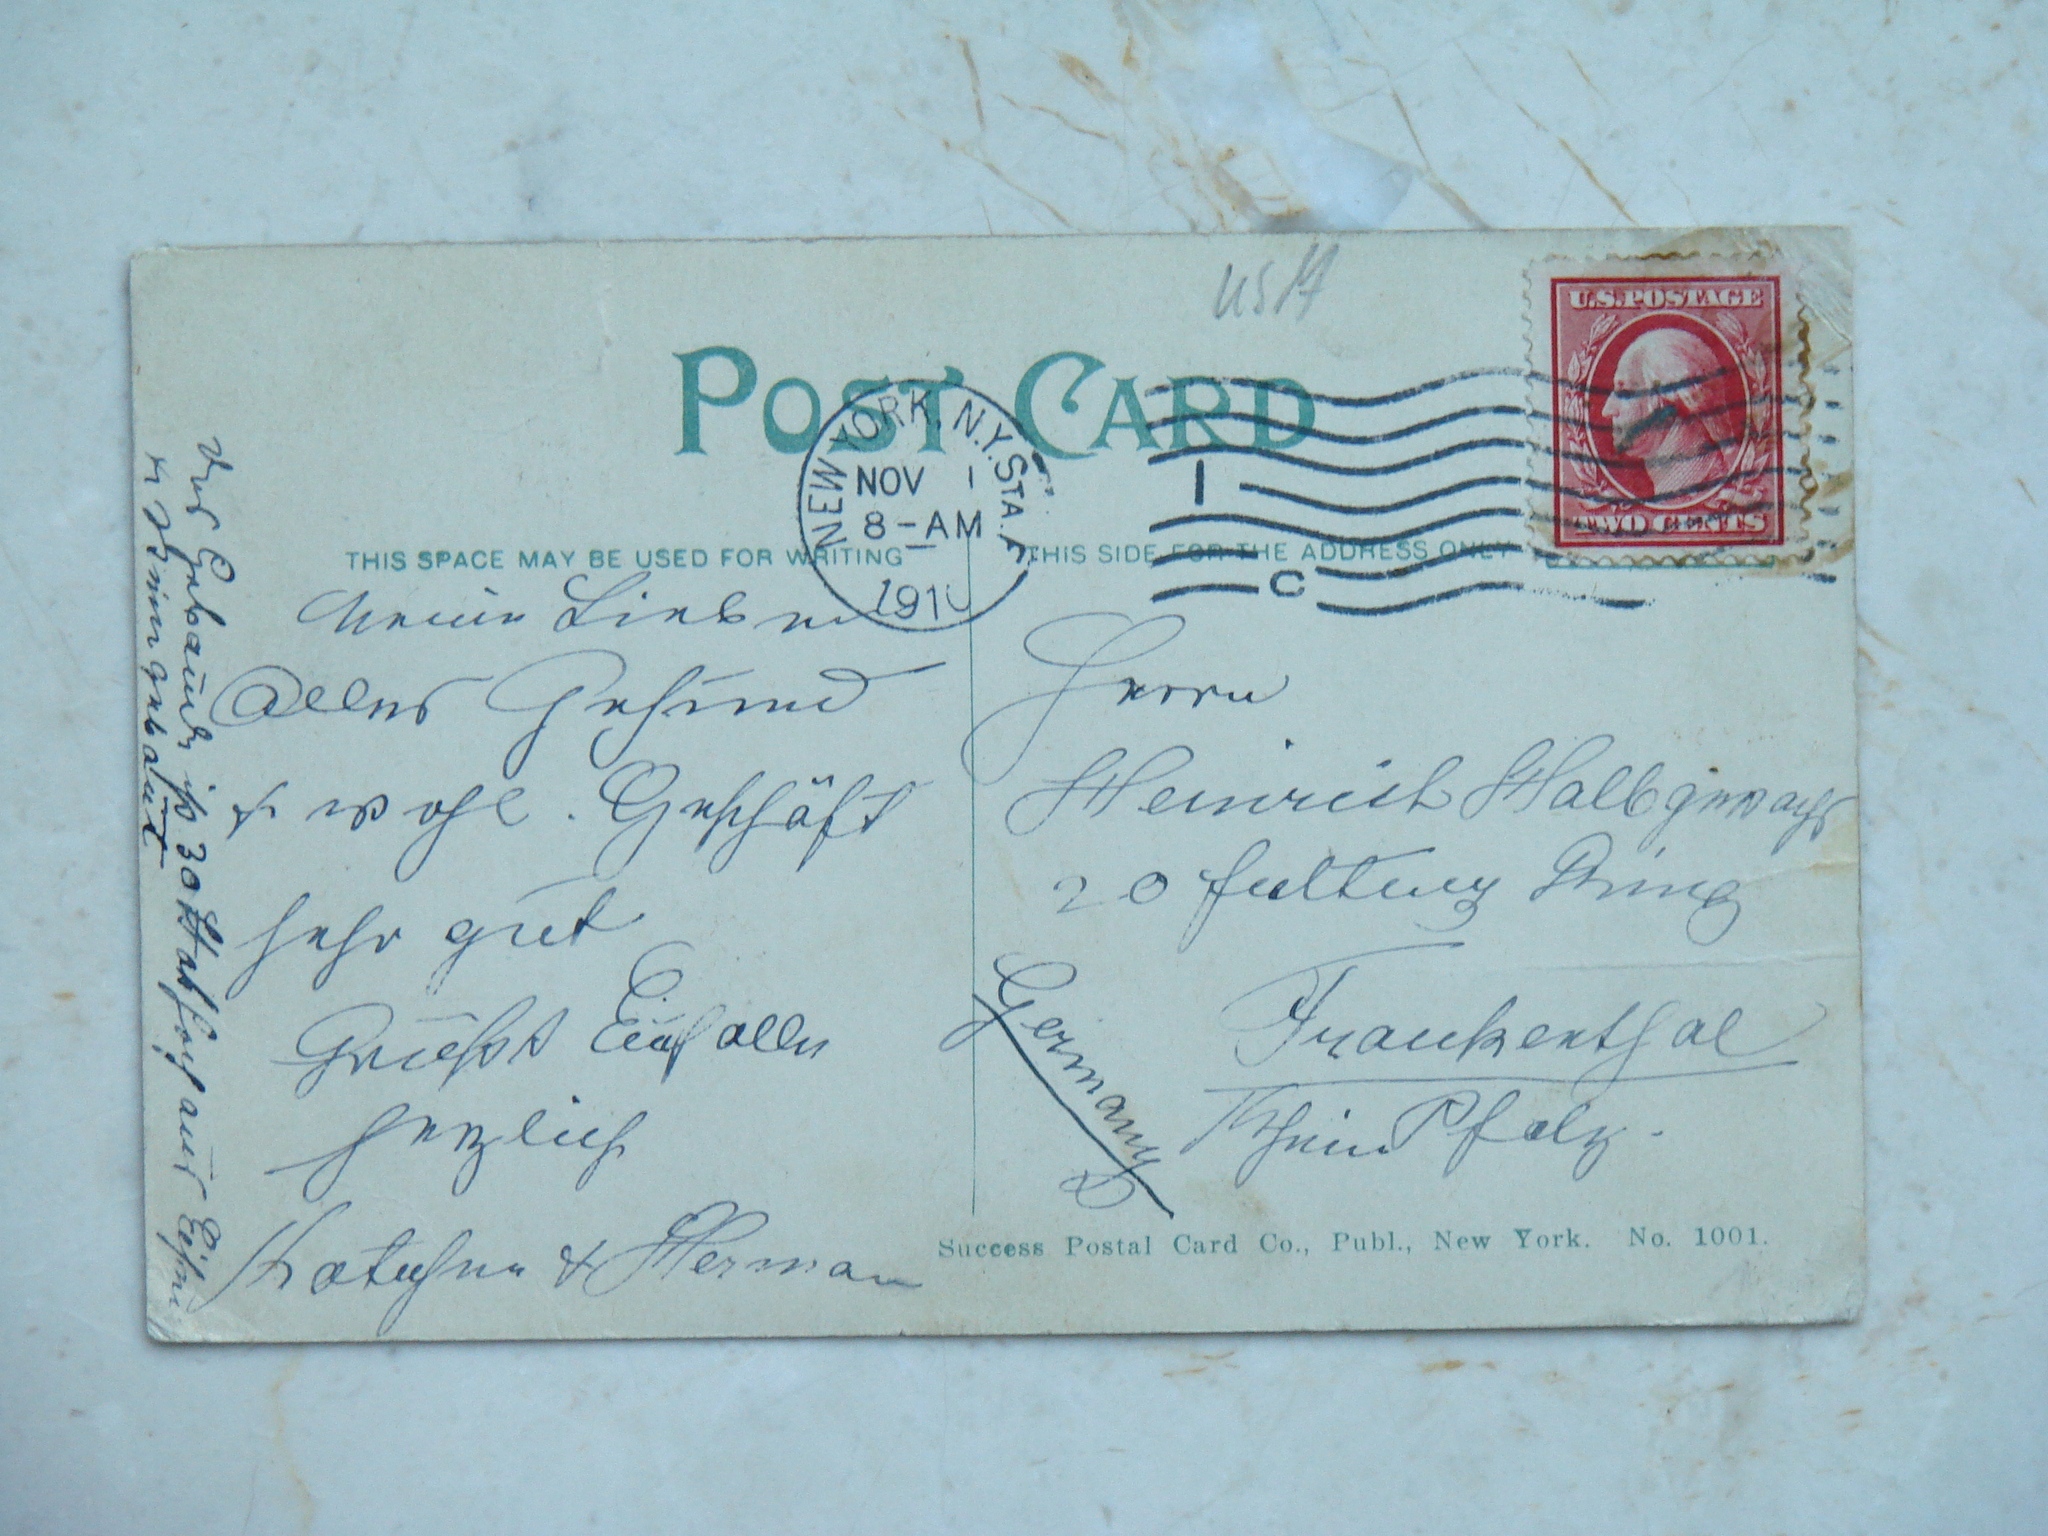 USA
U.S.POSTAGE
TWO CENTS
POST CARD
NEW YORK, N.Y. STA. A
NOV 1
8-AM
1910
1
C
THIS SPACE MAY BE USED FOR WRITING
THIS SIDE FOR THE ADDRESS ONLY
Meine Lieben
Alles Gesund
& wohl. Geschäft
sehr gut
Grüsst Euch allen
herzlich
Kätchen & Herman
Das Gebäude ist 30 Stock hoch aus Eisen
u Stein gebaut
Herrn
Heinrich Halbgewachs
20 Ring
Frankenthal
Rhein Pfalz.
Germany
Success Postal Card Co., Publ., New York. No. 1001.